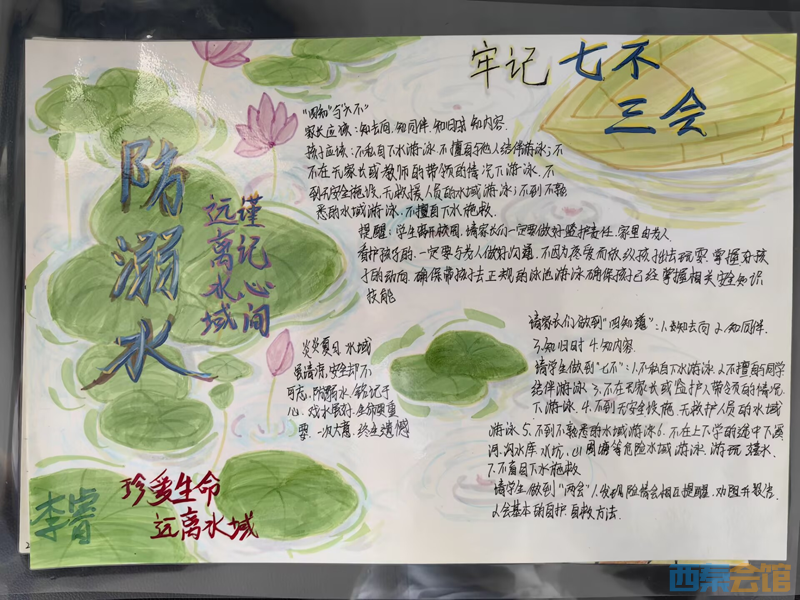 防溺水
谨记心间
远离水域
牢记七不
三会
"四知"与"六不"
家长应该:知去向、知同伴、知归时、知内容.
孩子应该:不私自下水游泳;不擅自与他人结伴游泳;不
不在无家长或教师的带领的情况下游泳、不
到不安全施设、无救援人员的水域游泳;不到不熟
悉的水域游泳、不擅自下水施救.
提醒:学生离开校园,请家长们一定要做好监护责任.家里由老人
看护孩子的,一定要与老人做好沟通,不因疼爱而放纵孩子出去玩耍.掌握好孩
子的动向.确保带孩子去正规的泳池游泳确保孩子已经掌握相关安全知识
技能
炎炎夏日 水域
虽清凉,安全却不
可忘,防溺水,铭记于
心,戏水虽好.生命更重
要.一次大意.终生遗憾
请家长们做到"四知道":1.知去向 2.知同伴.
3.知归时 4.知内容.
请学生做到"七不":1.不私自下水游泳.2.不擅自与同学
结伴游泳.3.不在无家长或监护人带领的情况
下游泳.4.不到无安全设施.无救护人员的水域
游泳 5.不到不熟悉的水域游泳 6.不在上下学的途中下溪
河.沟水库 水坑、山 等危险水域 游泳.游玩.
7.不盲目下水施救
请学生做到"两会"1.发现险情会相互提醒.劝阻并报告.
2.会基本的自护.自救方法.
珍爱生命
远离水域
李睿
西秦会馆